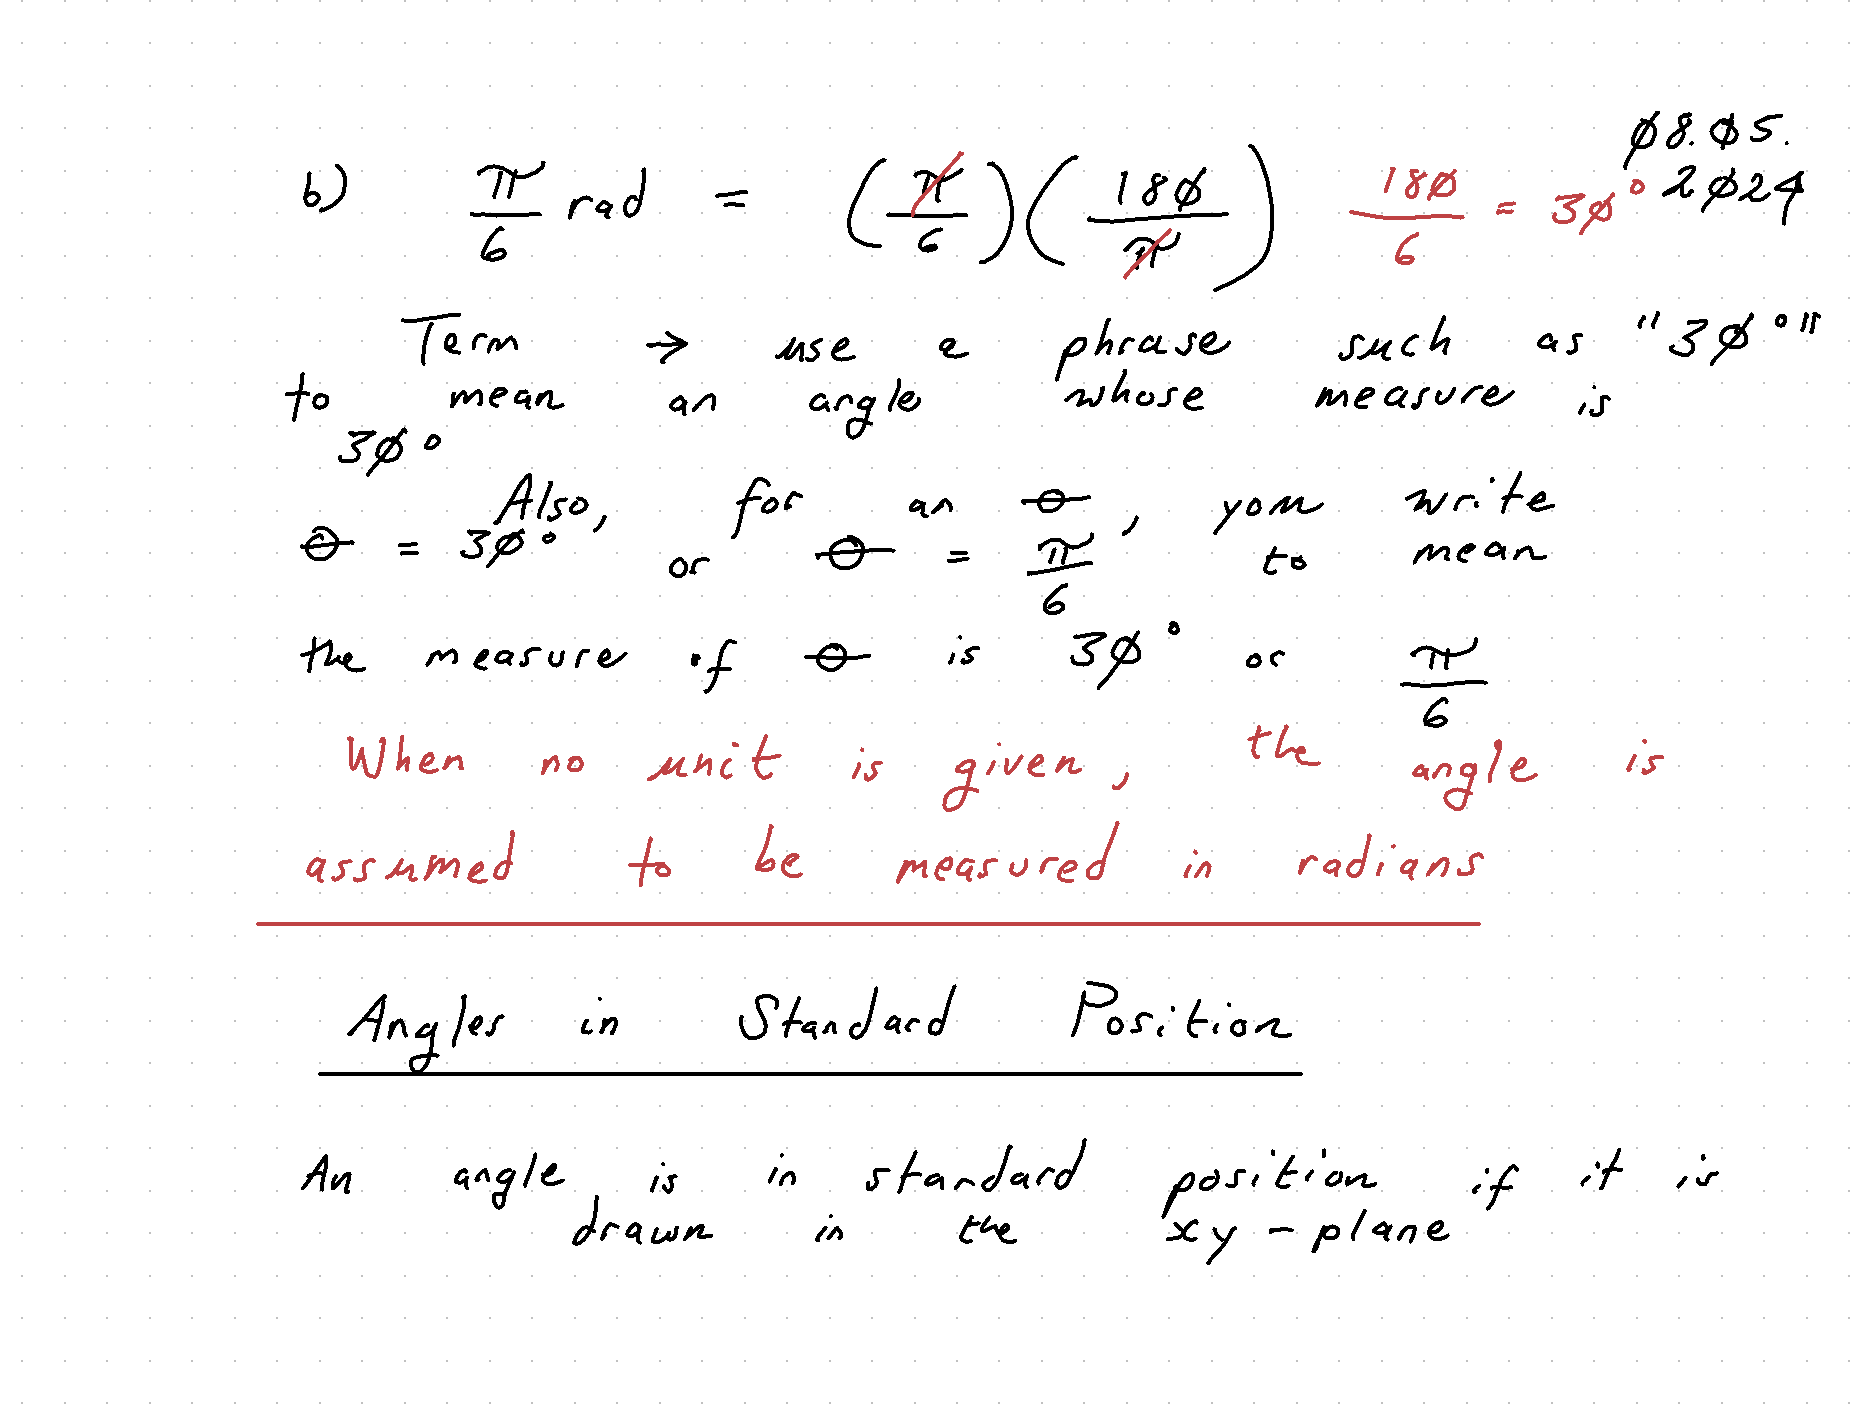 08.05.
2024
b) π/6 rad = (π/6)(180/π) 180/6 = 30°
Term → use a phrase such as "30°"
to mean an angle whose measure is
30°
Also, for an θ, you write
θ = 30° or θ = π/6 to mean
the measure of θ is 30° or π/6
When no unit is given, the angle is
assumed to be measured in radians
Angles in Standard Position
An angle is in standard position if it is
drawn in the xy-plane